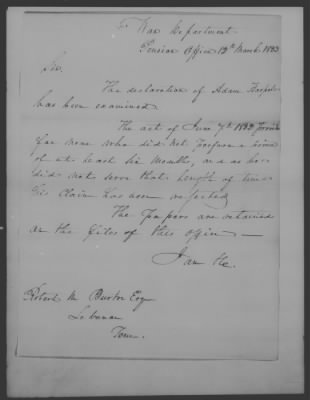 War Department
Pension Office 12th March 1833
Sir.
The declaration of Adam Harpole
has been examined.
The act of June 7th 1832 provides
for none who did not perform a service
of at least six Months, and as he
did not serve that length of time
his claim has been rejected
The papers are retained
on the files of this office —
I am &c.
Robert M Burton Esq
Lebanon
Tenn.